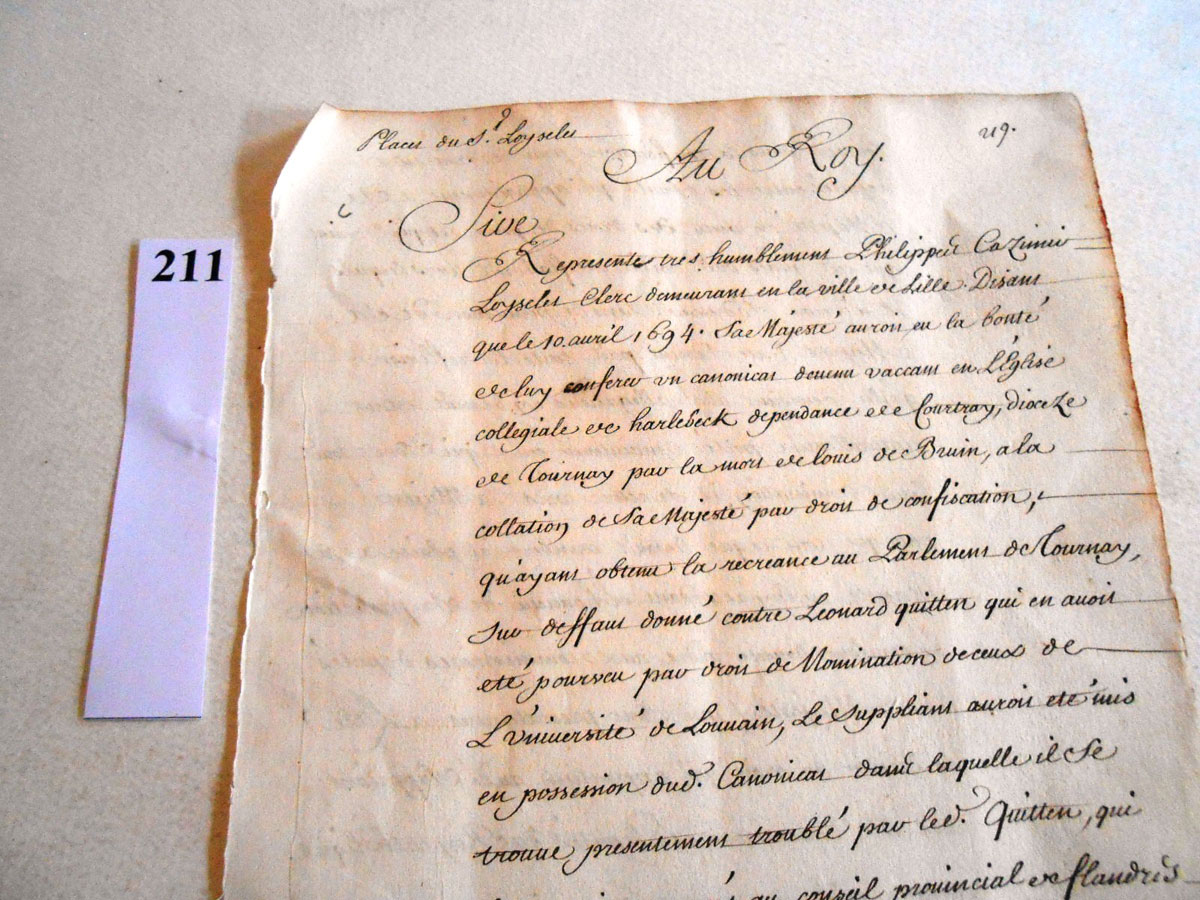 211
Placet du Sr. Loyseles
219.
Au Roy.
Sire
Represente tres humblement Philippe Cazimir
Loyseles Clerc demeurant en la ville de Lille. Disant
que le 10. avril 1694. Sa Majesté auroit eu la bonté
de luy conferer vn canonicat devenu vaccant en L'Eglise
collegiale de harlebeck dependance de Courtray, dioceze
de Tournay par la mort de louis de Bruin, a la
collation de Sa Majesté par droit de confiscation,
qu'ayant obtenu la recreance au Parlement de Tournay,
sur deffaut donné contre Leonard quitten qui en auoit
eté pourveu par droit de Nomination de ceux de
L'Vniversité de Louuain, Le Suppliant auroit eté mis
en possession dud. Canonicat dans laquelle il Se
trouue presentement troublé par led. Quitten, qui
au conseil provincial de flandres